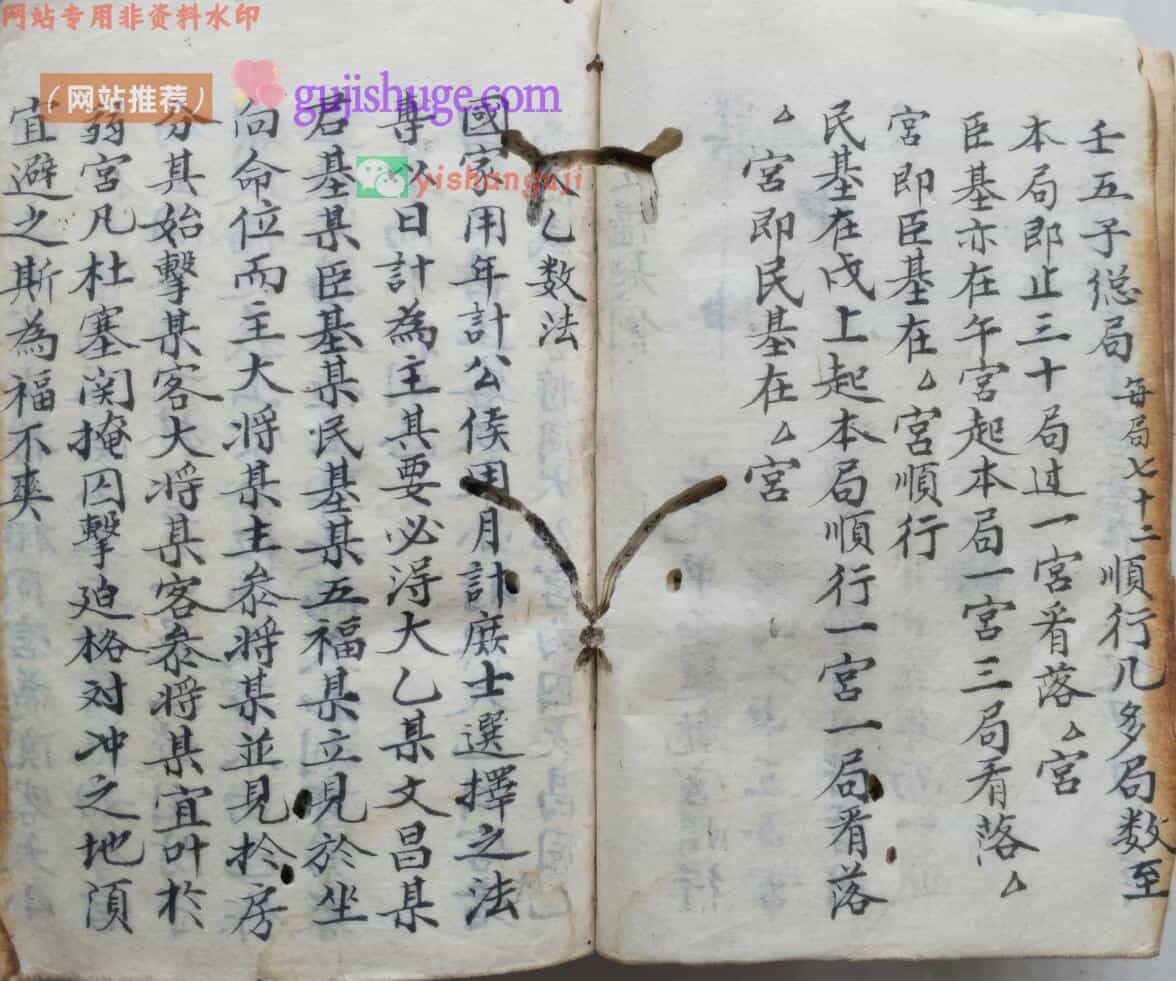 网站专用非资料水印
（网站推荐）
gujishuge.com
yishanguji
壬五子総局 每局七十二 順行几多局数至
本局即止三十局过一宮看落△宮
臣基亦在午宮起本局一宮三局看落△
宮即臣基在△宮順行
民基在戌上起本局順行一宮一局看落
△宮即民基在△宮
乙数法
國家用年計公侯用月計庶士選擇之法
專以日計為主其要必淂大乙某文昌某
君基某臣基某民基某五福某立見於坐
向命位而主大将某主叅将某並見扵房
分其始擊某客大将某客叅将某宜叶扵
弱宮凡杜塞関掩囚擊廹格対冲之地湏
宜避之斯為福不爽